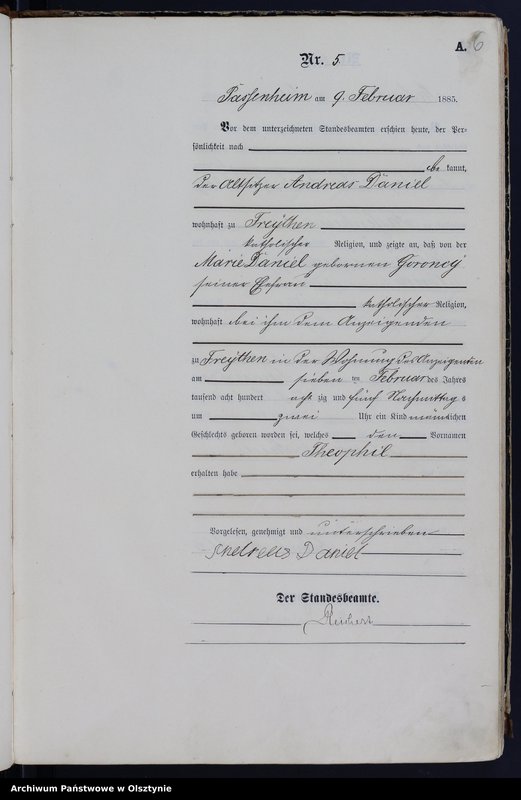 A. 6
Nr. 5.
Passenheim am 9. Februar 1885.
Vor dem unterzeichneten Standesbeamten erschien heute, der Per-
sönlichkeit nach
be kannt,
der Altsitzer Andreas Daniel
wohnhaft zu Freythen
katholischer Religion, und zeigte an, daß von der
Marie Daniel gebornen Goroncy
seiner Ehefrau
katholischer Religion,
wohnhaft bei ihm dem Anzeigenden
zu Freythen in der Wohnung des Anzeigenden
am sieben ten Februar des Jahres
tausend acht hundert acht zig und fünf Nachmittag s
um zwei Uhr ein Kind männlichen
Geschlechts geboren worden sei, welches den Vornamen
Theophil
erhalten habe
Vorgelesen, genehmigt und unterschrieben
Andreas Daniel
Der Standesbeamte.
Archiwum Państwowe w Olsztynie